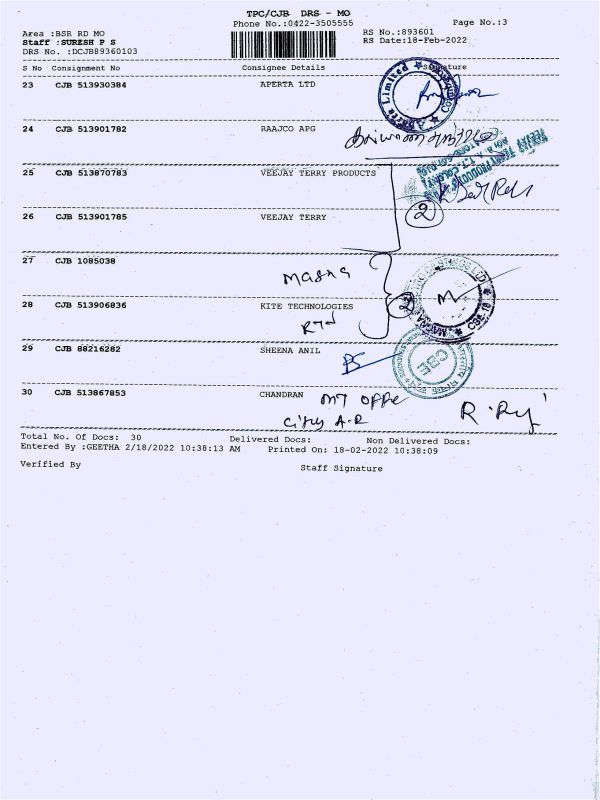 TPC/CJB DRS - MO
Phone No.:0422-3505555
Page No.:3
Area :BSR RD MO
RS No.:893601
Staff :SURESH P S
RS Date:18-Feb-2022
DRS No. :DCJB89360103
S No Consignment No Consignee Details Signature
23 CJB 513930384 APERTA LTD
24 CJB 513901782 RAAJCO APG
25 CJB 513870783 VEEJAY TERRY PRODUCTS
26 CJB 513901785 VEEJAY TERRY
2
27 CJB 1085038
Magna
28 CJB 513906836 KITE TECHNOLOGIES
29 CJB 88216282 SHEENA ANIL
CBE
30 CJB 513867853 CHANDRAN
city
Total No. Of Docs: 30 Delivered Docs: Non Delivered Docs:
Entered By :GEETHA 2/18/2022 10:38:13 AM Printed On: 18-02-2022 10:38:09
Verified By Staff Signature